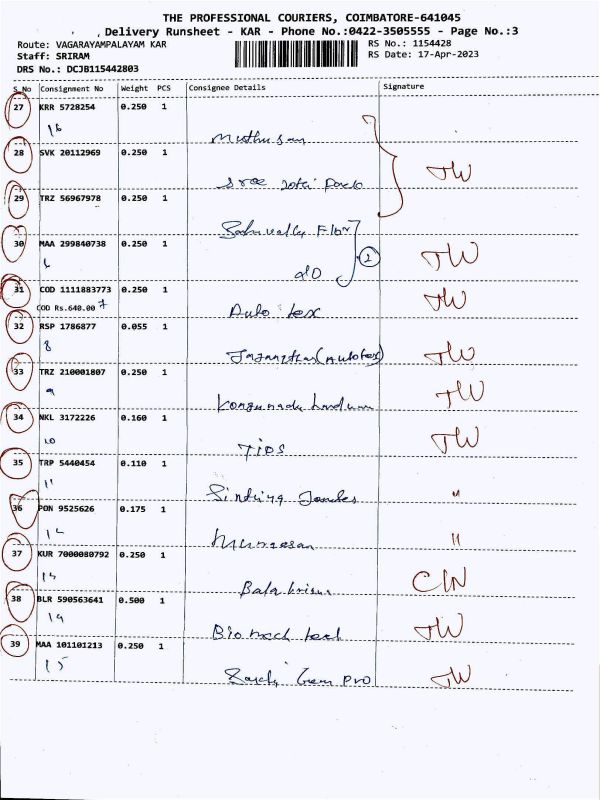 THE PROFESSIONAL COURIERS, COIMBATORE-641045
Delivery Runsheet - KAR - Phone No.:0422-3505555 - Page No.:3
Route: VAGARAYAMPALAYAM KAR RS No.: 1154428
Staff: SRIRAM RS Date: 17-Apr-2023
DRS No.: DCJB115442803
S.No Consignment No Weight PCS Consignee Details Signature
27 KRR 5728254 0.250 1
16
28 SVK 20112969 0.250 1
TW
29 TRZ 56967978 0.250 1
30 MAA 299840738 0.250 1
TW
6 do 2
31 COD 1111883773 0.250 1 TW
COD Rs.640.00 7 Auto tex
32 RSP 1786877 0.055 1
8 (Autotex) TW
33 TRZ 210001807 0.250 1 TW
9 Kongunadu
34 NKL 3172226 0.160 1 TW
10 TIPS
35 TRP 5440454 0.110 1
11 "
36 PON 9525626 0.175 1
12 Murugesan "
37 KUR 7000080792 0.250 1
13 CIN
38 BLR 590563641 0.500 1
14 Biomech TW
39 MAA 101101213 0.250 1
15 Pro TW